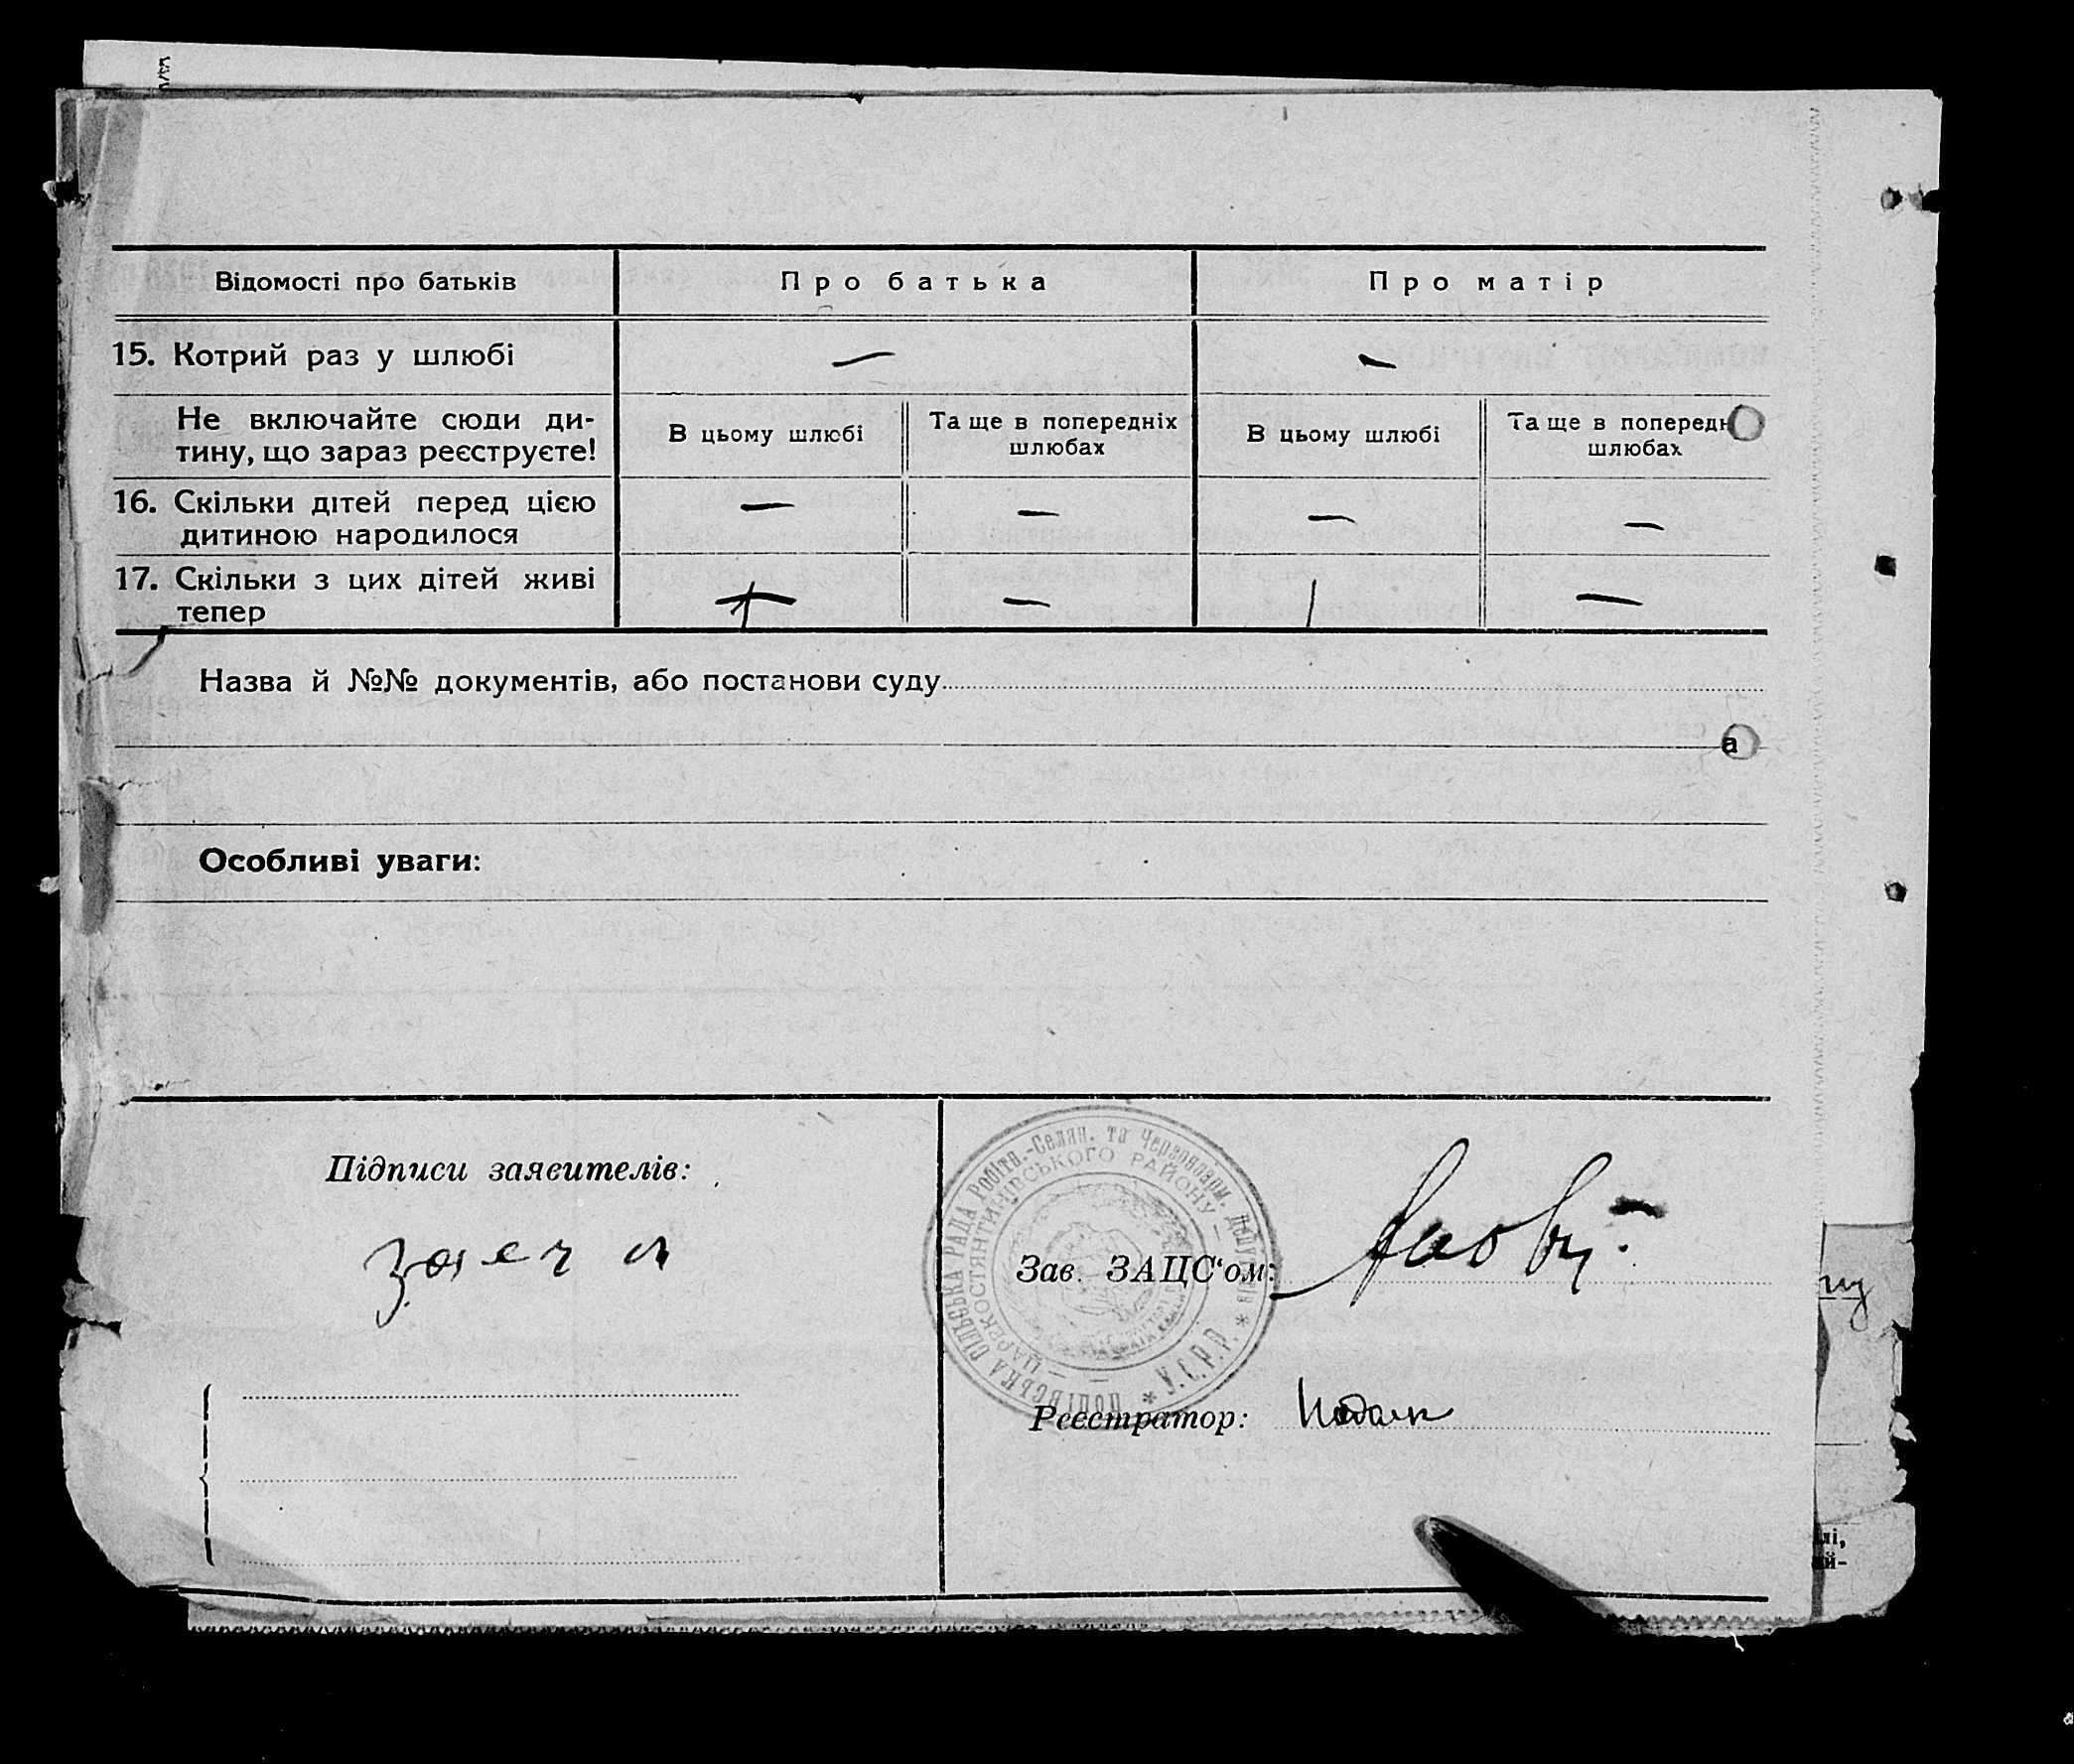 Відомості про батьків
Про батька
Про матір
15. Котрий раз у шлюбі — —
Не включайте сюди ди-
тину, що зараз реєструєте!
В цьому шлюбі
Та ще в попередніх
шлюбах
В цьому шлюбі
Та ще в попередн
шлюбах
16. Скільки дітей перед цією
дитиною народилося — — — —
17. Скільки з цих дітей живі
тепер — —
Назва й №№ документів, або постанови суду
а
Особливі уваги:
Підписи заявителів:
Заяч
ПОПІВСЬКА СІЛЬСЬКА РАДА Робітн.-Селян. та Червоноарм. Депутатів * У.С.Р.Р. *
ЦАРЕКОСТЯНТИНІВСЬКОГО РАЙОНУ
Зав. ЗАЦС‘ом:
Реєстратор:
лі,
ий-